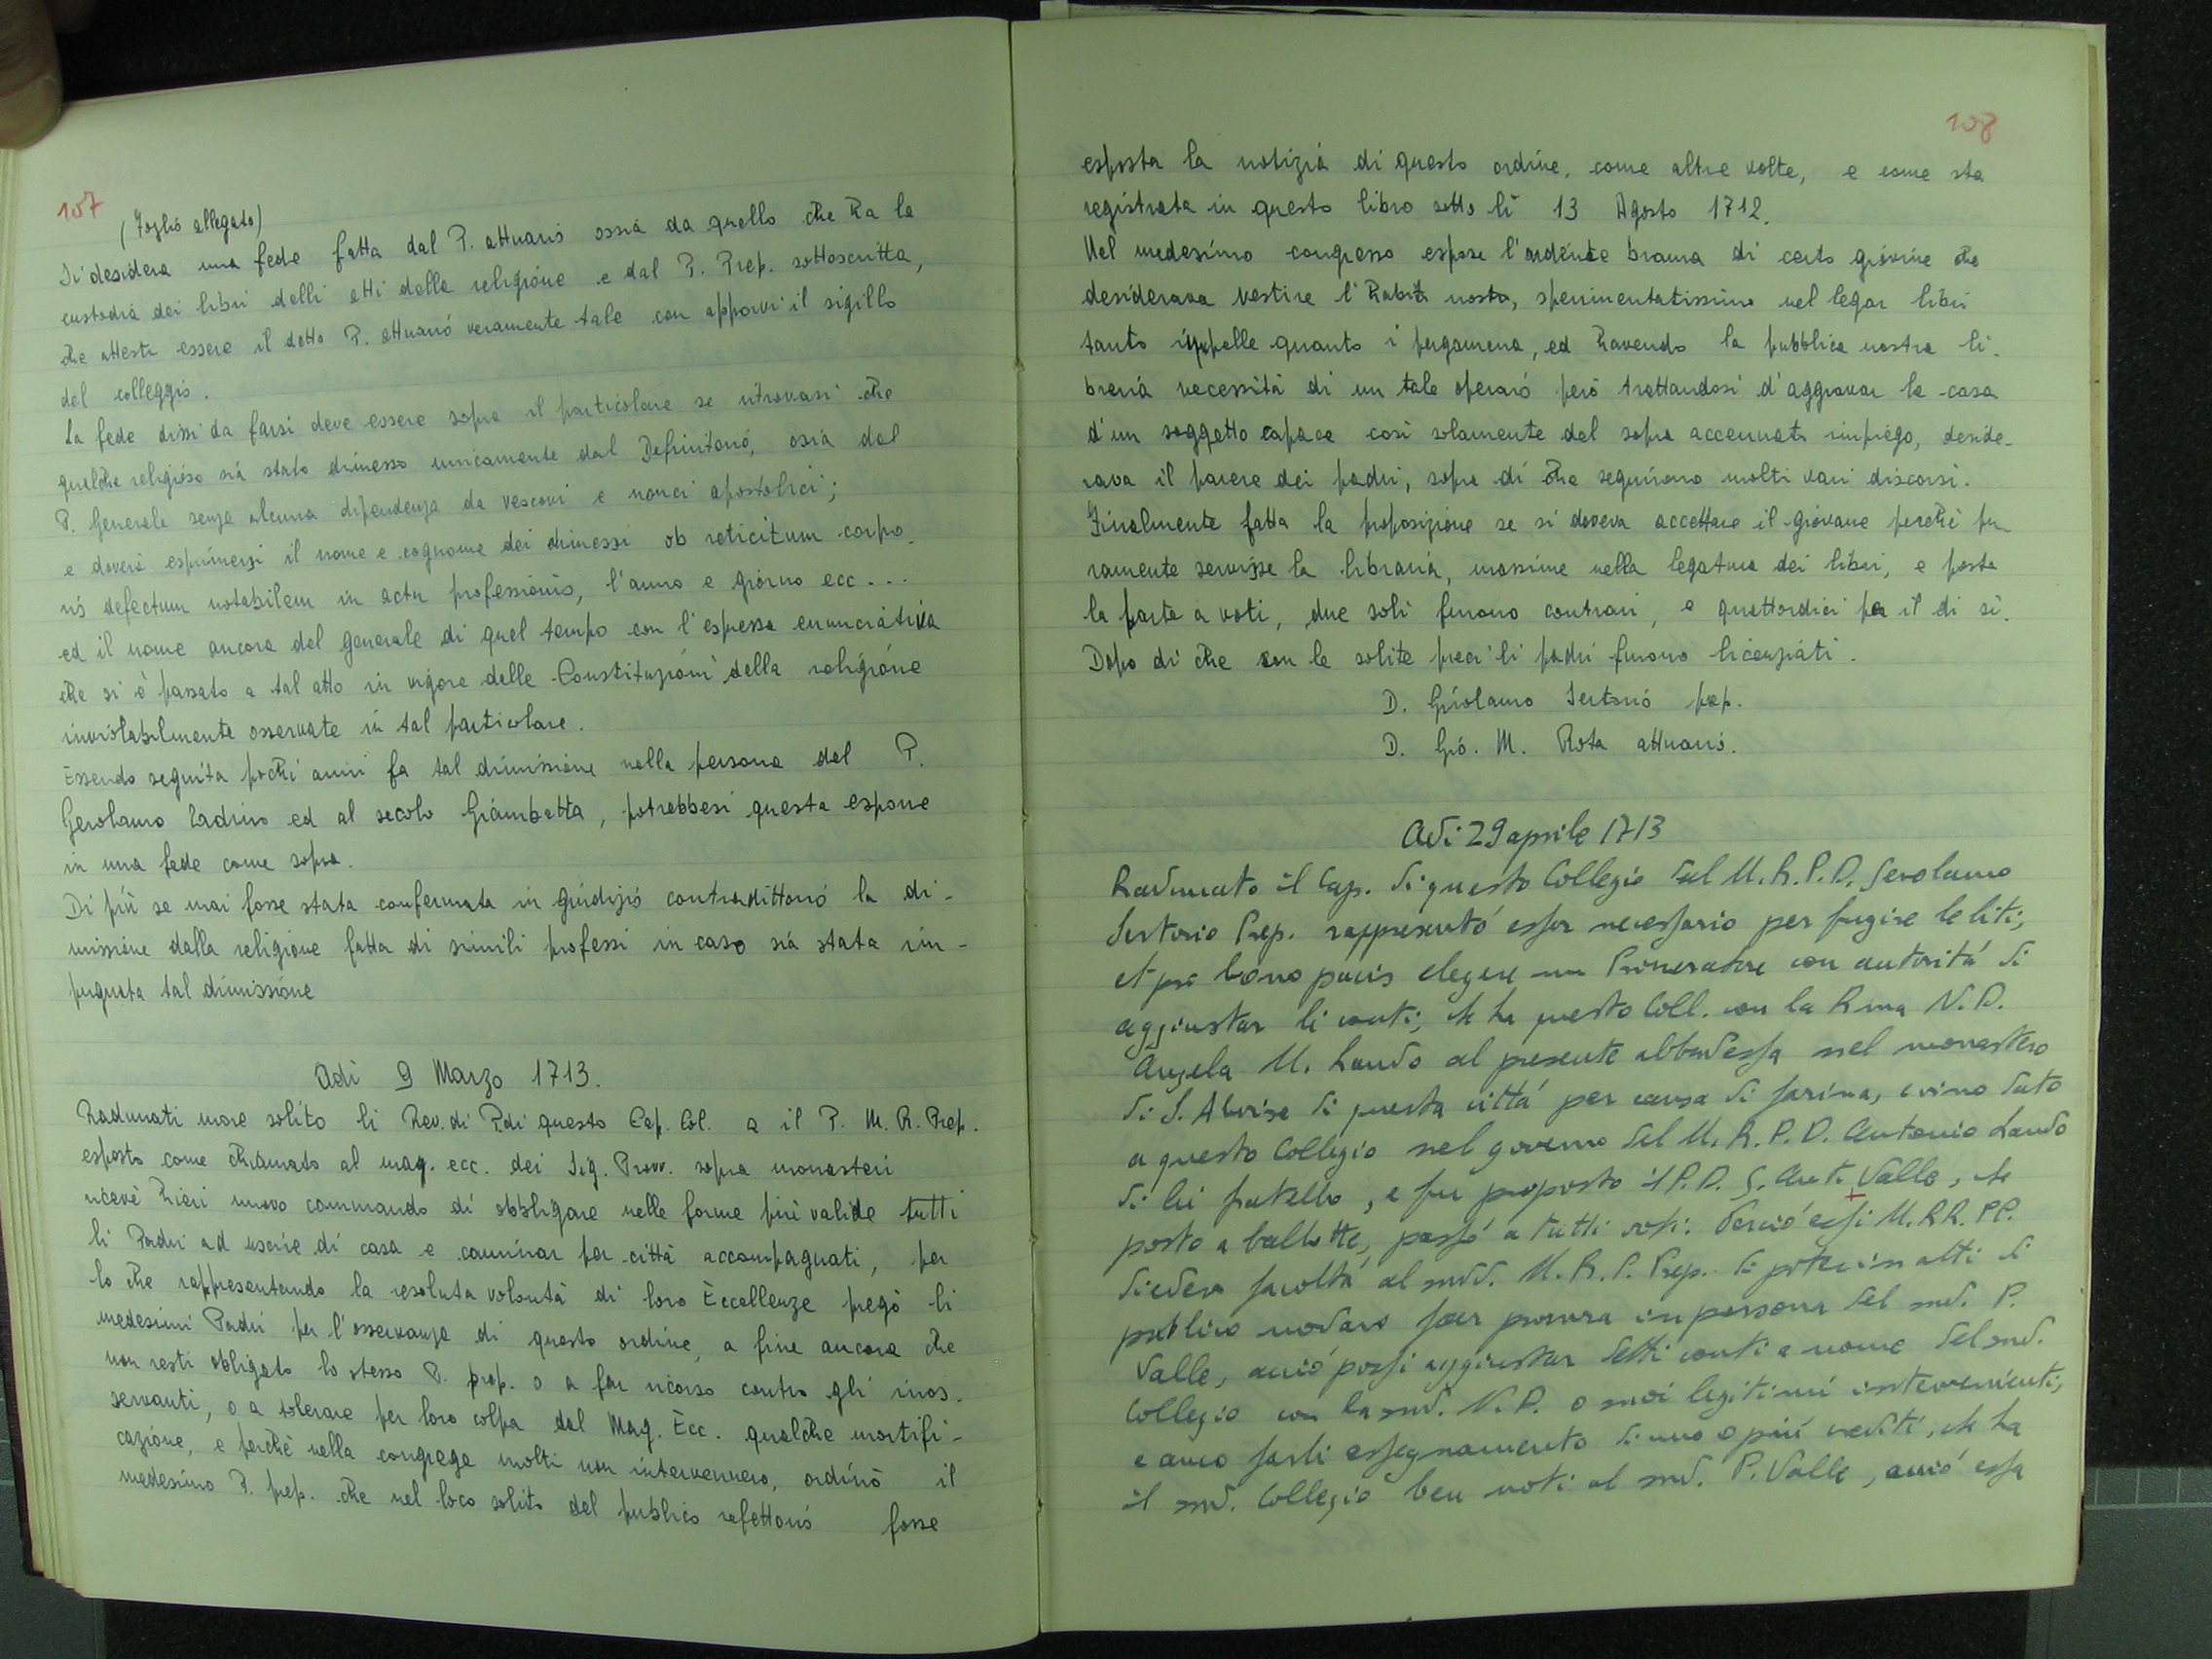 107
(Foglio allegato)
Si desidera una fede fatta dal P. attuario ossia da quello che ha la
custodia dei libri delli atti della religione e dal P. Prep. sottoscritta,
che attesti essere il detto P. attuario veramente tale con apporvi il sigillo
del colleggio.
La fede dissi da farsi deve essere sopra il particolare se ritrovasi che
qualche religioso sia stato dimesso unicamente dal Definitorio, osia dal
P. Generale senza alcuna dipendenza da vescovi e nonci apostolici;
e doverà esprimersi il nome e cognome dei dimessi ob reticitum corpo-
ris defectum notabilem in actu professionis, l'anno e giorno ecc...
ed il nome ancora del generale di quel tempo con l'espressa enunciativa
che si è passato a tal atto in vigore delle Constituzioni della religione
inviolabilmente osservate in tal particolare.
Essendo seguita pochi anni fa tal dimissione nella persona del P.
Gerolamo Ladrino ed al secolo Giambatta, potrebbesi questa esporre
in una fede come sopra.
Di più se mai fosse stata confermata in giudizio contradittorio la di-
missione dalla religione fatta di simili professi in caso sia stata im-
pugnata tal dimissione
Adi 9 Marzo 1713.
Radunati more solito li Rev.di P.di questo Cap. Col. e il P. M. R. Prep.
esposto come chiamato al mag. ecc. dei Sig. Provv. sopra monasteri
ricevè hieri nuovo commando di obbligare nelle forme più valide tutti
li Padri ad uscire di casa e caminar per città accompagnati, per
lo che rappresentando la resoluta volontà di loro Eccellenze pregò li
medesimi Padri per l'osservanza di questo ordine, a fine ancora che
non resti obligato lo stesso P. prep. o a far ricorso contro gli inos-
servanti, o a tolerare per loro colpa dal Mag. Ecc. qualche mortifi-
cazione, e perchè nella congrega molti non intervennero, ordinò il
medesimo P. prep. che nel loco solito del publico refettorio fosse
108
esposta la notizia di questo ordine, come altre volte, e come sta
registrata in questo libro sotto li 13 Agosto 1712.
Nel medesimo congresso espose l'ardente brama di certo giovine che
desiderava vestire l'habito nostro, sperimentatissimo nel legar libri
tanto in pelle quanto i pergamena, ed havendo la pubblica nostra li-
breria necessità di un tale operaio però trattandosi d'aggravar la casa
d'un soggetto capace così solamente del sopra accennato impiego, deside-
rava il parere dei padri, sopra di che seguirono molti vari discorsi.
Finalmente fatta la proposizione se si doveva accettare il giovane perchè pu-
ramente servisse la libraria, massime nella legatura dei libri, e posta
la parte a voti, due soli furono contrari, e quattordici per il di sì.
Dopo di che con le solite preci li padri furono licenziati.
D. Girolamo Sertorio prep.
D. Gio. M. Rota attuario.
Adi 29 aprile 1713
Radunato il Cap. di questo Collegio dal M.R.P.D. Gerolamo
Sertorio Prep. rappresentó esser necessario per fugire le liti,
et pro bono pacis elegere un Procuratore con autoritá di
aggiustar li conti, ch ha questo Coll. con la R.ma N.D.
Angela M. Lando al presente abbadessa nel monastero
di S. Alvise di questa cittá per causa di farina, e vino dato
a questo Collegio nel governo del M.R.P.D. Antonio Lando
di lei fratello, e fu proposto il P.D. G. Ant. Valle, ch
posto a ballotte, passó a tutti voti. Perció essi M.RR.PP.
diedero facoltá al sudd. M.R.P. Prep. di poter in atti di
publico nodaro far procura in persona del sud. P.
Valle, acció possi aggiustar detti conti a nome del sud.
Collegio con la sud. N.D. o suoi legitimi intervenienti,
e anco farli assegnamento di uno o piú crediti, ch ha
il sud. Collegio ben noti al sud. P. Valle, acció essa